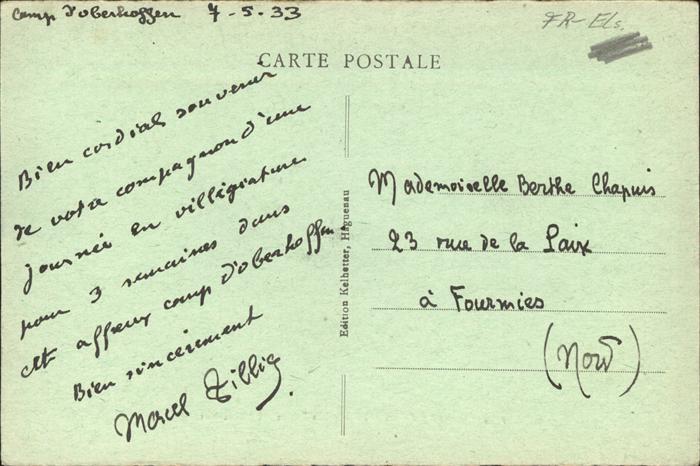 Camp d'oberhoffen 7-5-33
FR-Els.
CARTE POSTALE
Bien cordial souvenir
de votre compagnon d'une
journée en villégiature
pour 3 semaines dans
cet affreux camp d'oberhoffen
Bien sincèrement
Marcel Zillig
Edition Kelhetter, Haguenau
Mademoiselle Berthe Chapuis
23 rue de la Paix
à Fourmies
(Nord)